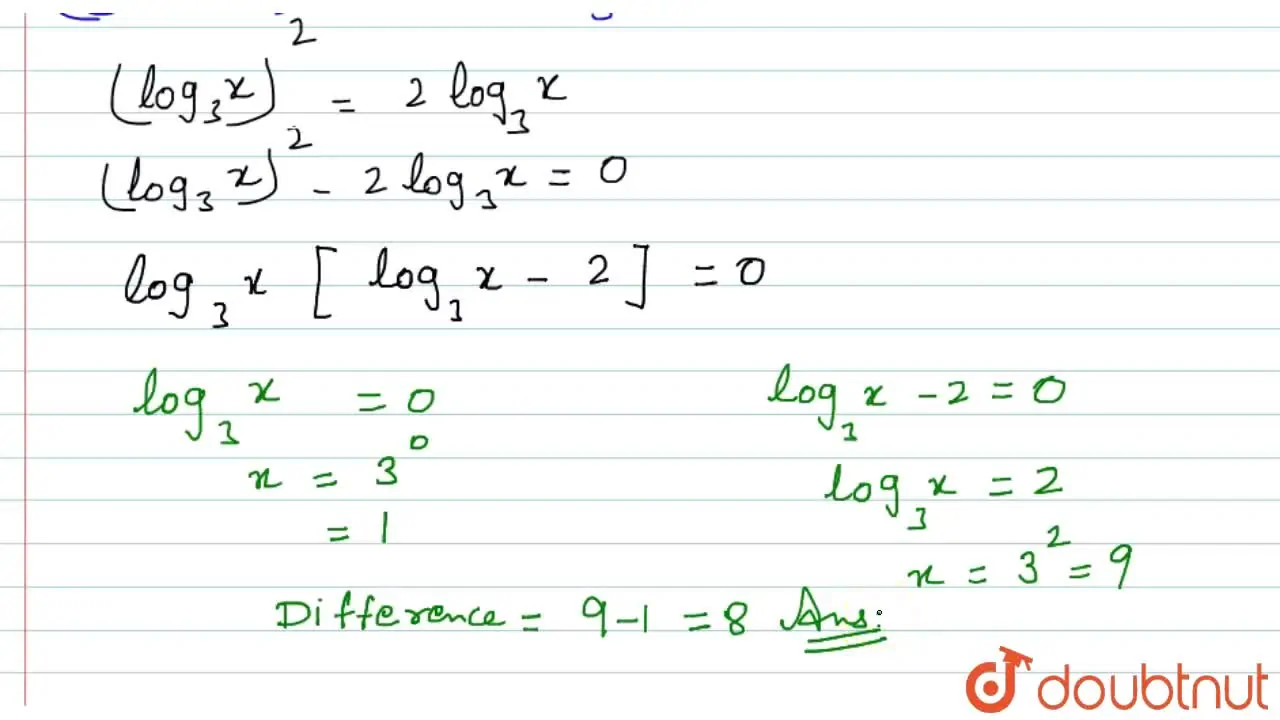 (log₃x)² = 2 log₃x
(log₃x)² - 2 log₃x = 0
log₃x [ log₃x - 2 ] = 0
log₃x = 0
x = 3⁰
= 1
log₃x - 2 = 0
log₃x = 2
x = 3² = 9
Difference = 9-1 = 8 Ans:
doubtnut